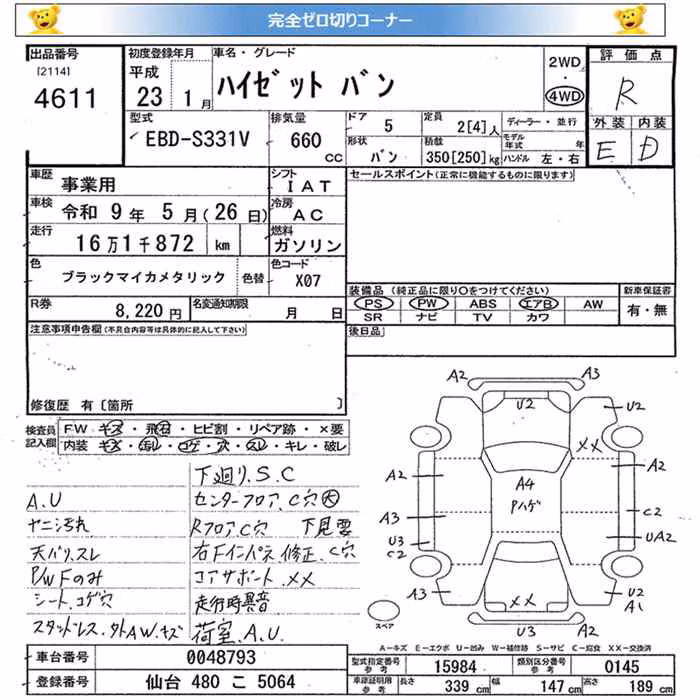 完全ゼロ切りコーナー
出品番号
[2114]
4611
初度登録年月
平成
23 1月
車名・グレード
ハイゼット バン
2WD
・
4WD
評価点
R
外装 内装
E D
型式
EBD-S331V
排気量
660
CC
ドア 5
形状 バン
定員 2[4]人
積載 350[250]kg
ディーラー・並行
モデル年式 年
ハンドル 左・右
車歴 事業用
シフト IAT
車検 令和 9年 5月(26日)
冷房 AC
走行 16万1千872 km
燃料 ガソリン
色 ブラックマイカメタリック 色替
色コード X07
R券 8,220円
名変通知期限 月 日
セールスポイント(正常に機能するものに限ります)
装備品(純正品に限り○をつけてください)
PS PW ABS エアB AW
SR ナビ TV カワ
新車保証書
有・無
後日品
注意事項申告欄(不具合内容等は具体的に記入して下さい)
修復歴 有〔箇所 〕
検査員記入欄
FW キズ・飛石・ヒビ割・リペア跡・×要
内装 キズ・汚れ・コゲ・穴・スレ・キレ・破レ
下廻り.S.C
A.U
センターフロア.C穴大
ヤニ汚れ
Rフロア.C穴 下見要
天バリ.スレ
右Fインパネ修正.C穴
P/W Fのみ
コアサポート.XX
シート.コゲ穴
走行時異音
スタッドレス.外AW.キズ
荷室.A.U
A2 A3
U2 U2
XX
A2 A2
A4
Pハゲ
A3 C2
U3 C2 UA2
A3 XX U2 A1
U3 A2
スペア
A-キズ E-エクボ U-凹み W-補修跡 S-サビ C-腐食 XX-交換済
車台番号 0048793
登録番号 仙台 480 こ 5064
型式指定番号 参考 15984
類別区分番号 参考 0145
車庫証明用 参考 長さ 339 cm 幅 147 cm 高さ 189 cm